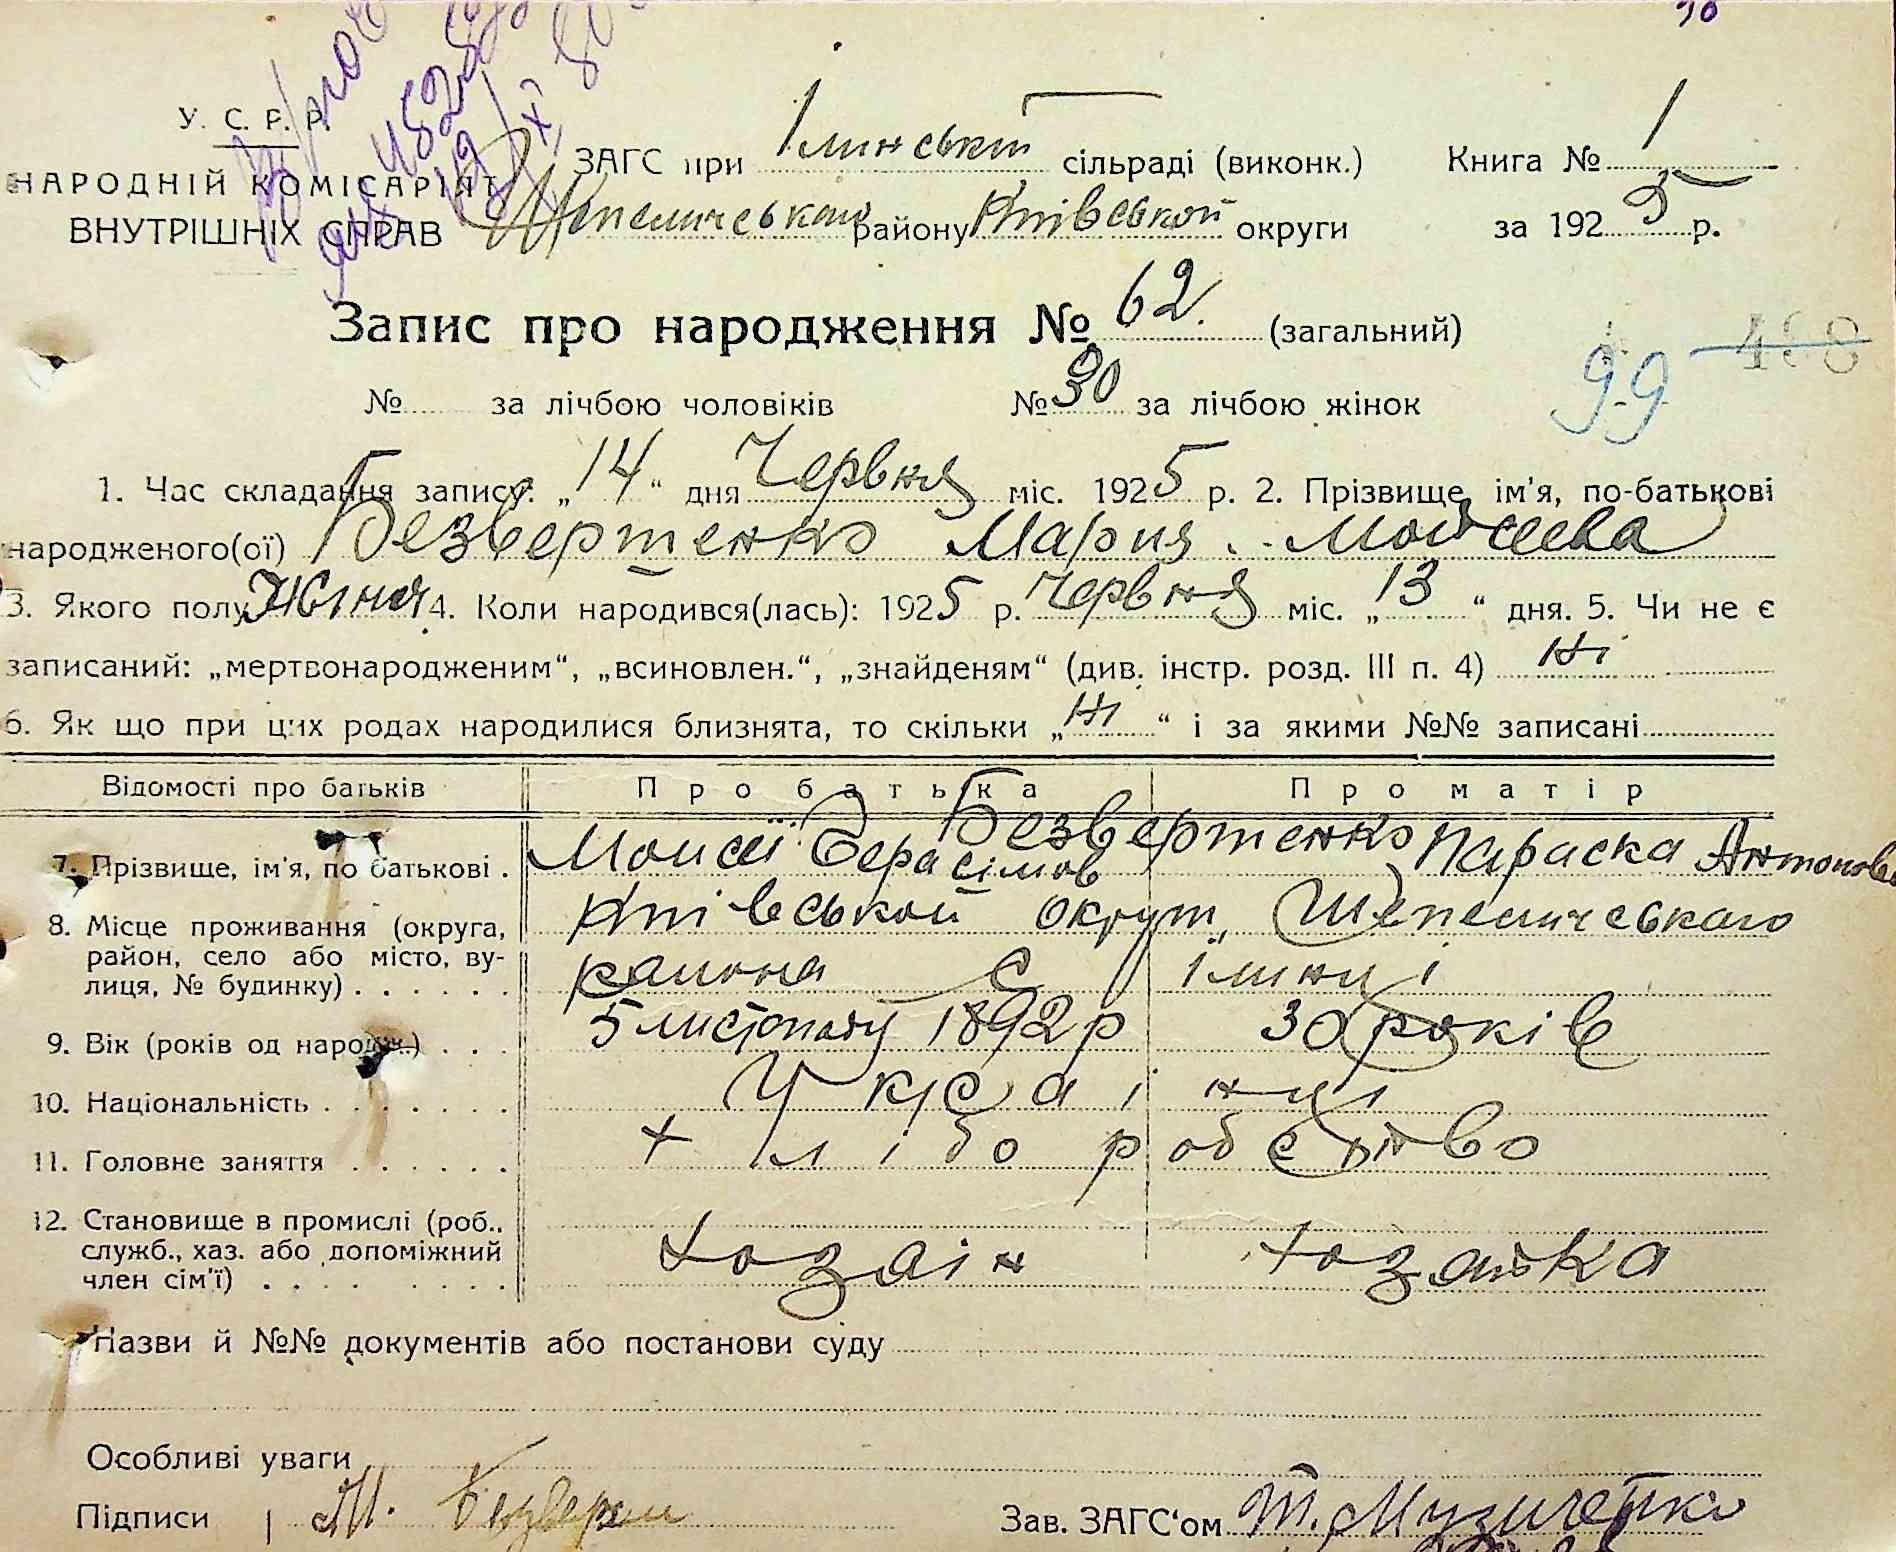 У. С. Р. Р.
НАРОДНІЙ КОМІСАРІЯТ
ВНУТРІШНІХ СПРАВ
ЗАГС при Ілинській сільраді (виконк.) Книга № 1
Шепеличського району Київської округи за 1925 р.
Запис про народження № 62. (загальний)
99 498
№ за лічбою чоловіків № 30 за лічбою жінок
1. Час складання запису: „14“ дня Червня міс. 1925 р. 2. Прізвище, ім'я, по-батькові
народженого(ої) Безвертенко Мария Мойсеева
3. Якого полу Жіноч. 4. Коли народився(лась): 1925 р. Червня міс. „13“ дня. 5. Чи не є
записаний: „мертвонародженим“, „всиновлен.“, „знайденям“ (див. інстр. розд. III п. 4) Ні
6. Як що при цих родах народилися близнята, то скільки „Ні“ і за якими №№ записані
Відомості про батьків Про батька Про матір
7. Прізвище, ім'я, по батькові . Безвертенко
Моисей Герасімов Параска Антонова
8. Місце проживання (округа, район, село або місто, вулиця, № будинку) . . . . . . Київськой округи, Шепеличського
района С Ілинці
9. Вік (років од народж.) . . . 5 листопаду 1892 р 30 років
10. Національність . . . . . . . Украінці
11. Головне заняття . . . . . . Хліборобство
12. Становище в промислі (роб., служб., хаз. або допоміжний член сім'ї) . . . . . . . . Хозаін Хозайка
Назви й №№ документів або постанови суду
Особливі уваги
Підписи М. Безверт
Зав. ЗАГС'ом Т. Музиченко